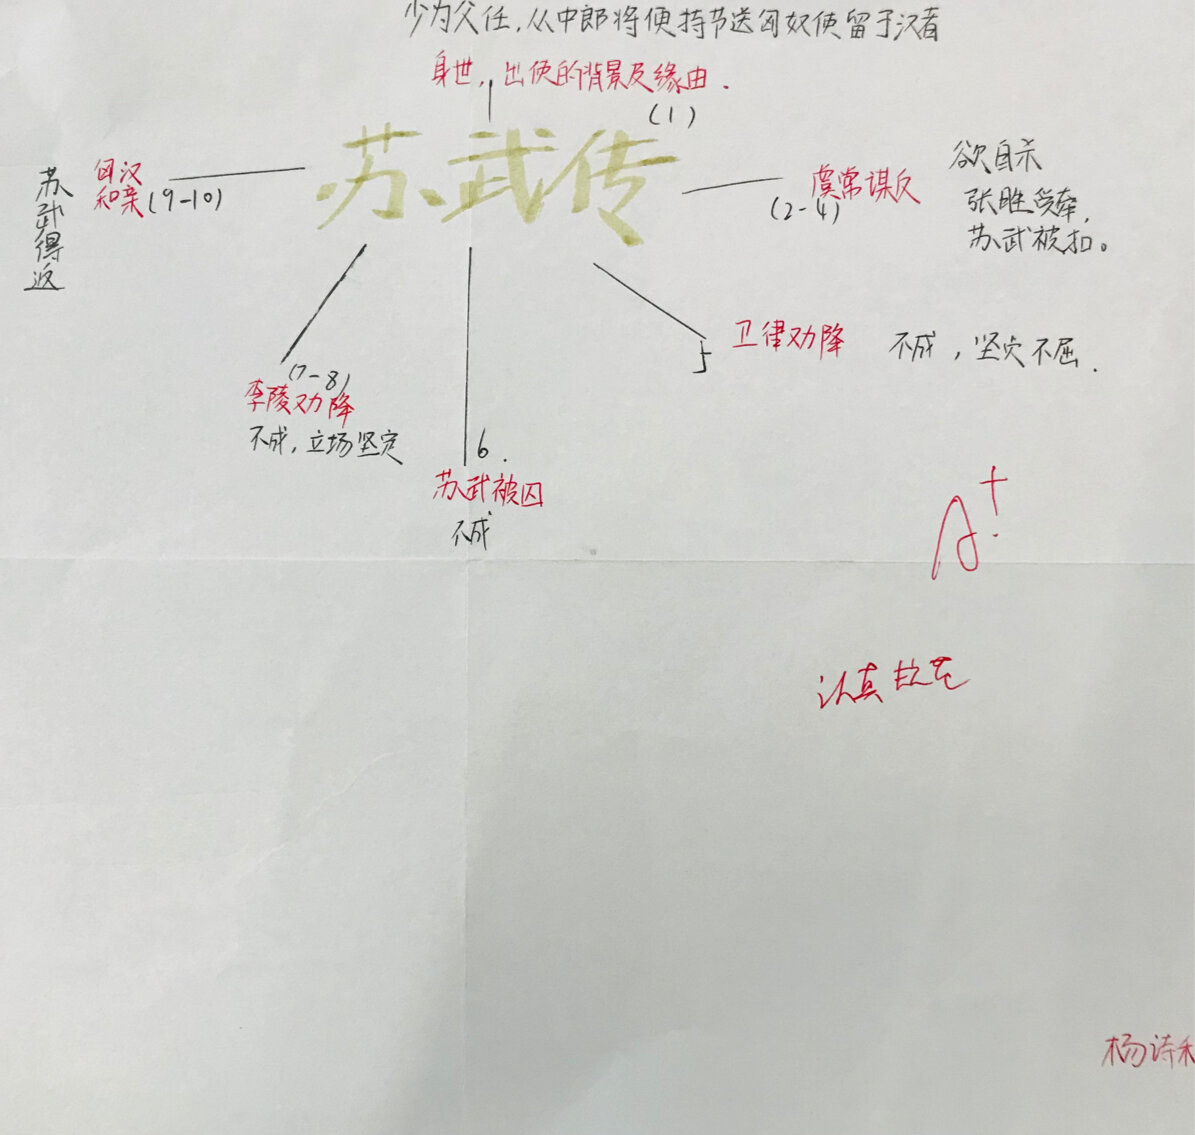 少为父任,从中郎将使持节送匈奴使留于汉者
身世,出使的背景及缘由.
(1)
苏武传
虞常谋反
(2-4)
欲自杀
张胜受牵,
苏武被扣。
匈汉
和亲(9-10)
苏武得返
卫律劝降 不成,坚定不屈.
5
(7-8)
李陵劝降
不成,立场坚定
6.
苏武被囚
不成
A+
认真
杨诗